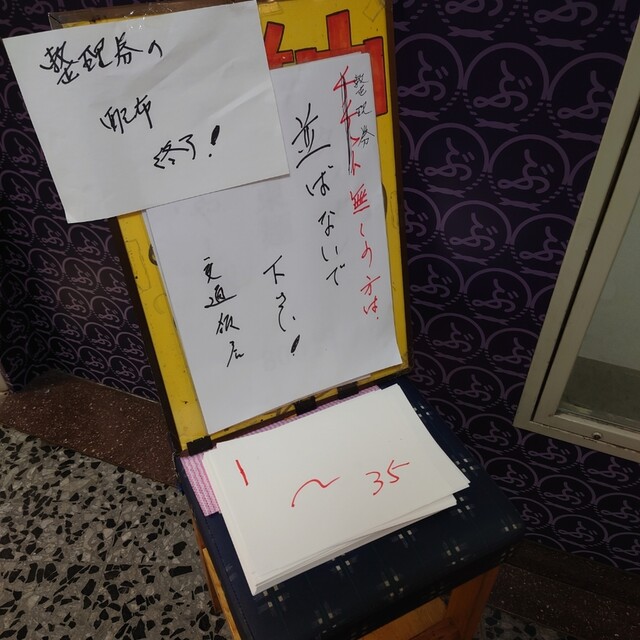 整理券の
配布
終了!
整理券
チケット無しの方は、
並ばないで
下さい!
交通飯店
1 ~ 35